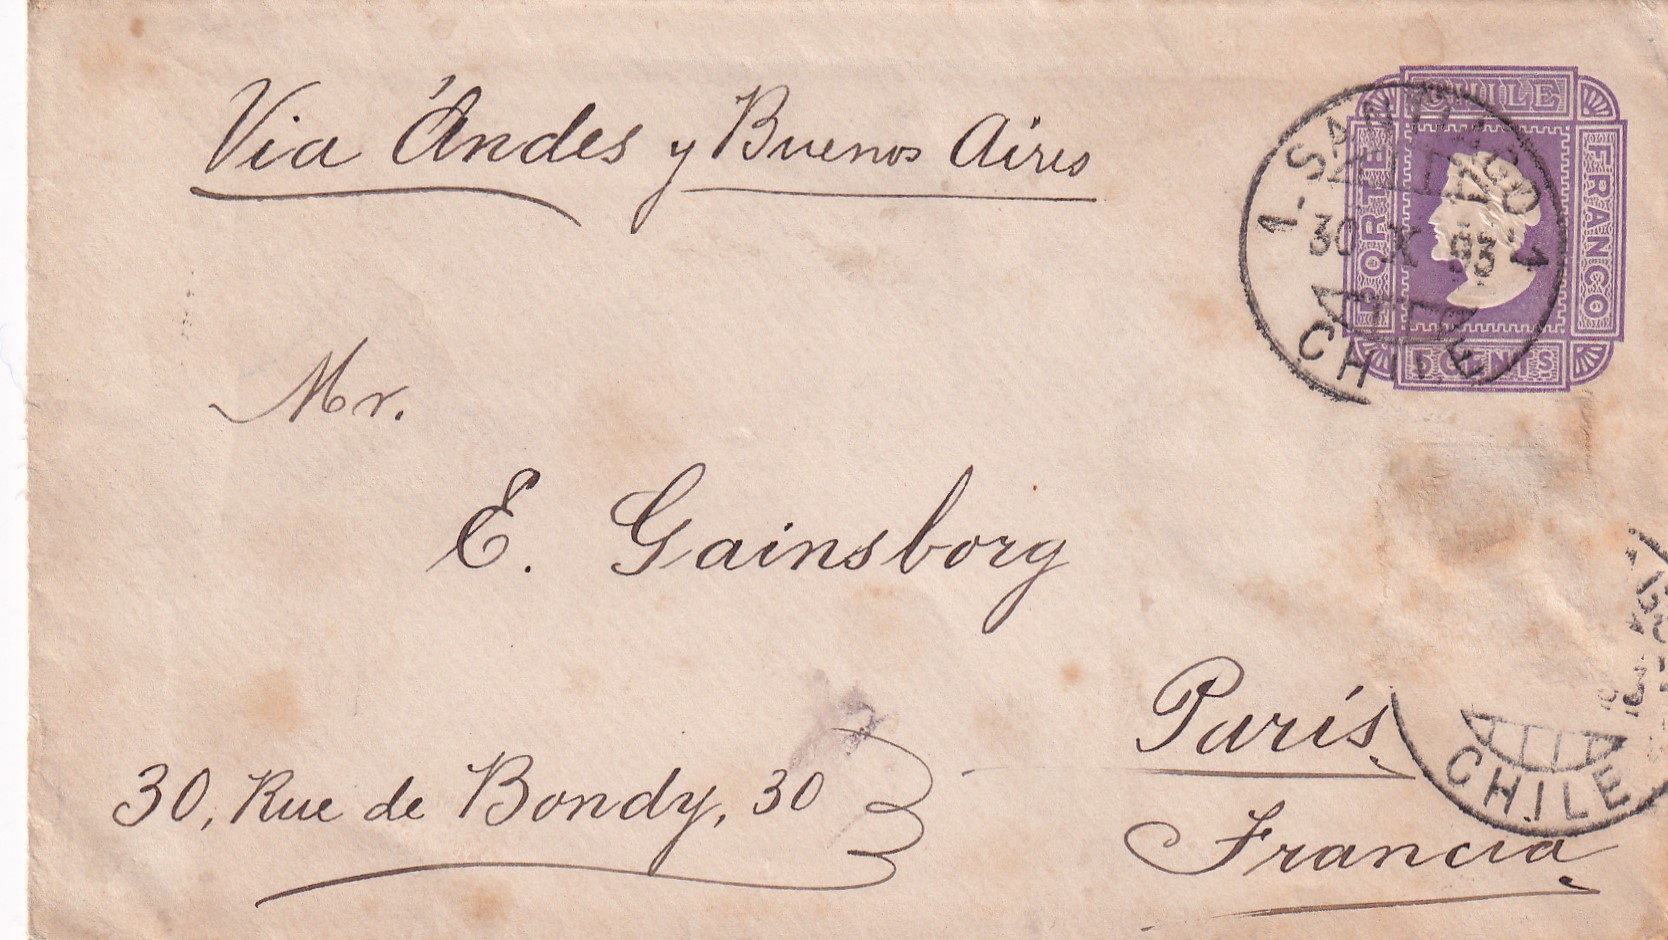 Via Ándes y Buenos Aires
CHILE
PORTE
FRANCO
5 CENTS
1. SANTIAGO .1
30 X 93
CHILE
Mr.
E. Gainsborg
París
30, Rue de Bondy, 30
Francia
CHILE